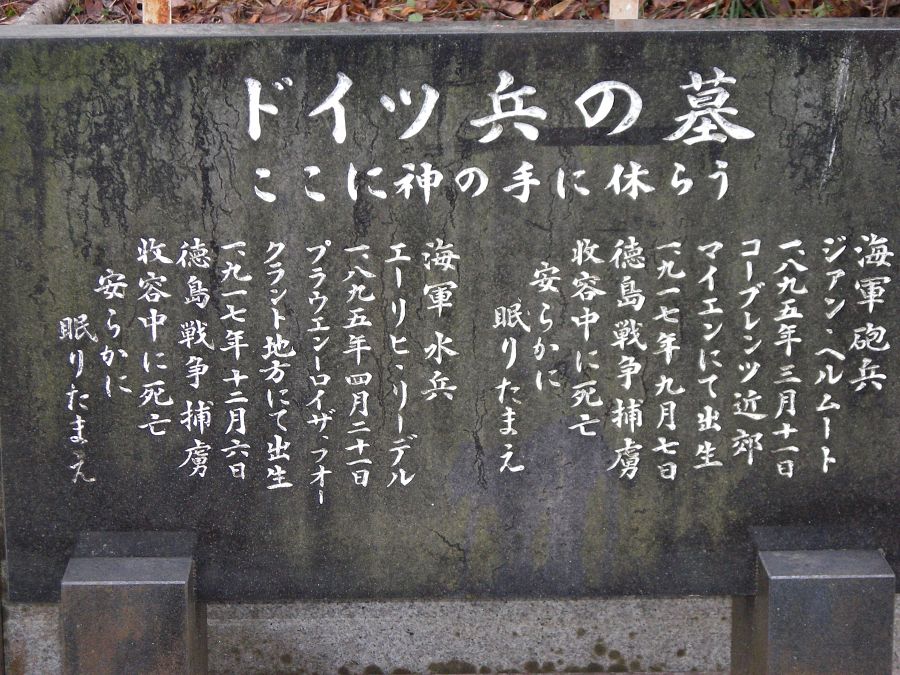 ドイツ兵の墓
ここに神の手に休らう
海軍砲兵
ジァン・ヘルムート
一八九五年三月十一日
コーブレンツ近郊
マイエンにて出生
一九一七年九月七日
徳島戦争捕虜
収容中に死亡
安らかに
眠りたまえ
海軍水兵
エーリヒ・リーデル
一八九五年四月二十一日
プラウエンーロイザ、フオー
クラント地方にて出生
一九一七年十二月六日
徳島戦争捕虜
收容中に死亡
安らかに
眠りたまえ